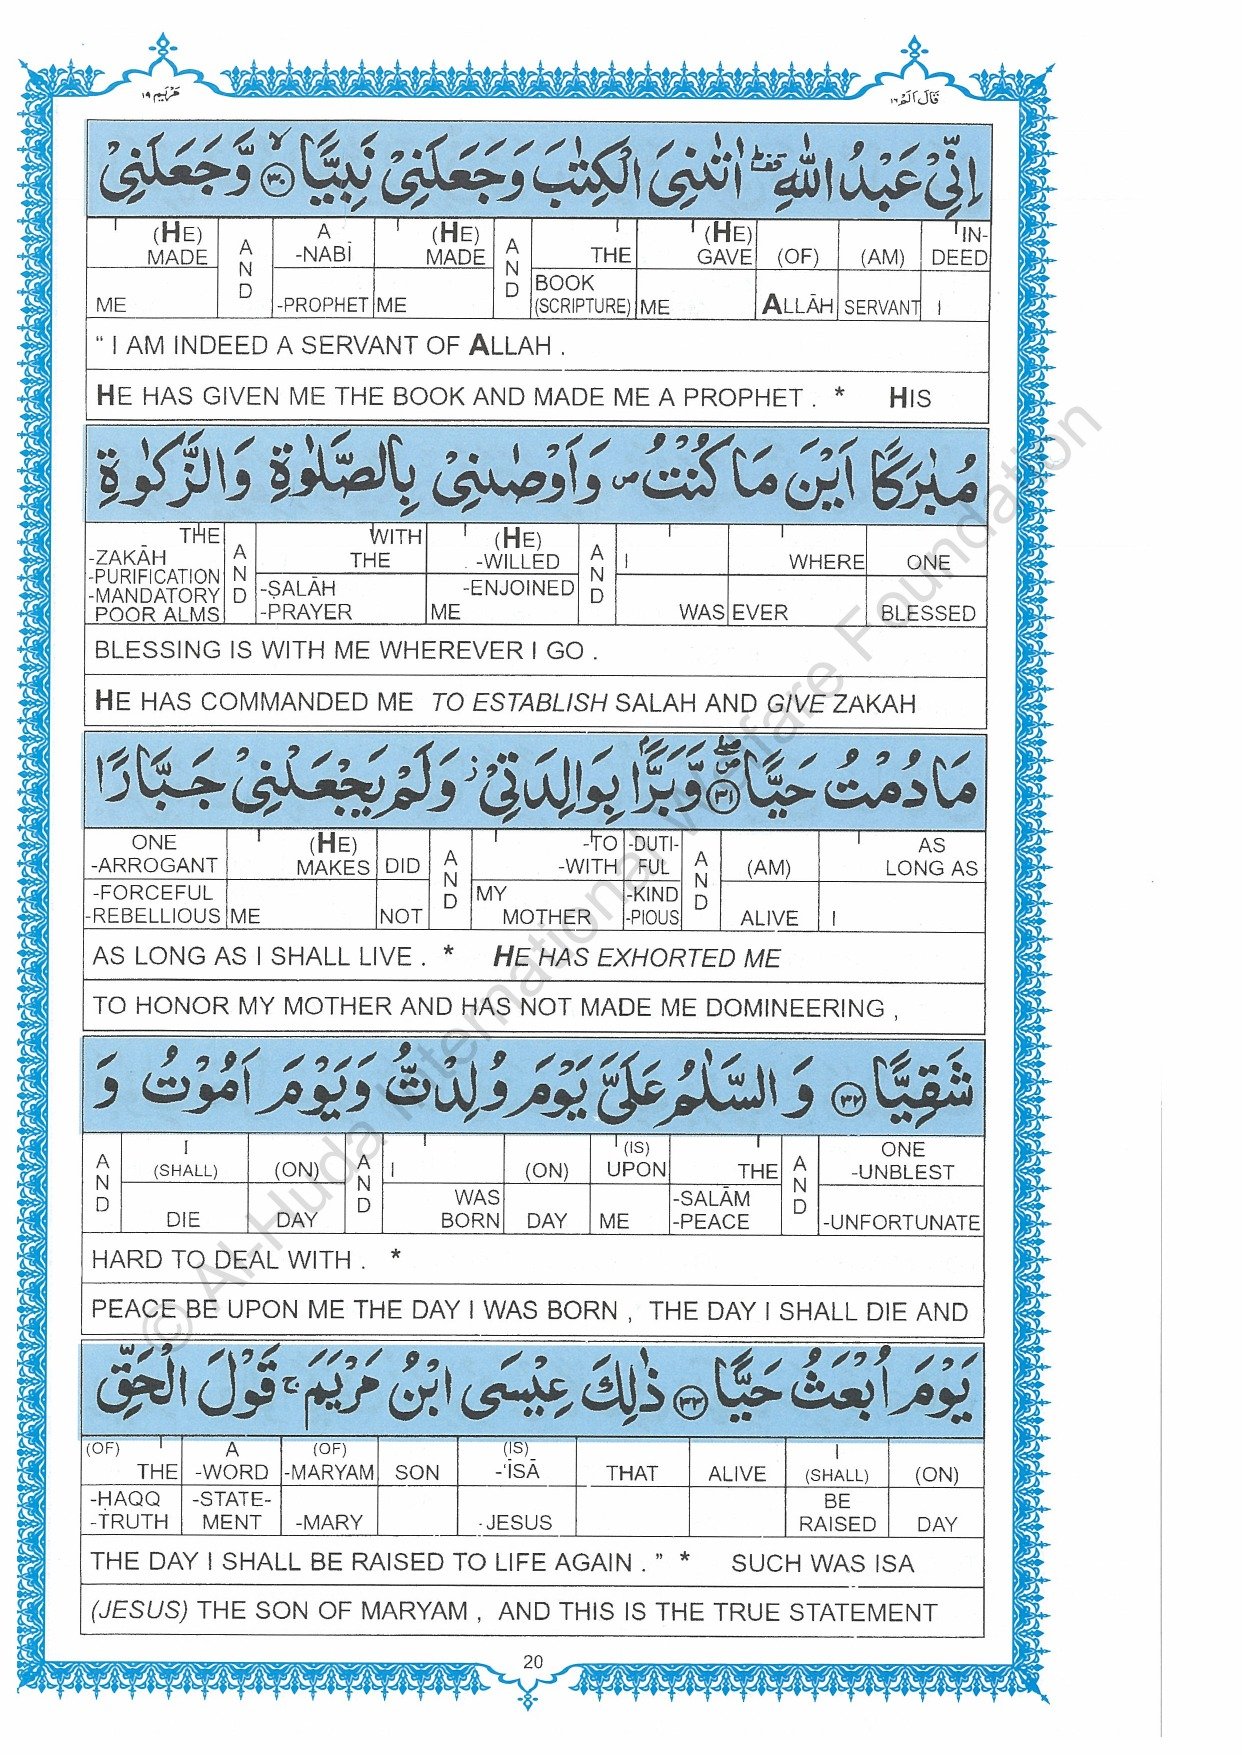 مريم ١٩
قال الم ١٦
اِنِّيْ عَبْدُ اللّٰهِ ۗ اٰتٰىنِيَ الْكِتٰبَ وَجَعَلَنِيْ نَبِيًّا ۙ ٣٠ وَّجَعَلَنِيْ
(HE) A (HE) (HE) IN-
MADE AND -NABĪ MADE AND THE GAVE (OF) (AM) DEED
ME -PROPHET ME BOOK (SCRIPTURE) ME ALLĀH SERVANT I
“ I AM INDEED A SERVANT OF ALLAH .
HE HAS GIVEN ME THE BOOK AND MADE ME A PROPHET . * HIS
مُبٰرَكًا اَيْنَ مَا كُنْتُ ۖ وَاَوْصٰنِيْ بِالصَّلٰوةِ وَالزَّكٰوةِ
THE WITH (HE)
-ZAKĀH AND THE -WILLED AND I WHERE ONE
-PURIFICATION -ṢALĀH -ENJOINED
-MANDATORY
POOR ALMS -PRAYER ME WAS EVER BLESSED
BLESSING IS WITH ME WHEREVER I GO .
HE HAS COMMANDED ME TO ESTABLISH SALAH AND GIVE ZAKAH
مَا دُمْتُ حَيًّا ۖ ٣١ وَّبَرًّا بِوَالِدَتِيْ ز وَلَمْ يَجْعَلْنِيْ جَبَّارًا
ONE (HE) -TO -DUTI- AS
-ARROGANT MAKES DID AND -WITH FUL AND (AM) LONG AS
-FORCEFUL MY -KIND
-REBELLIOUS ME NOT MOTHER -PIOUS ALIVE I
AS LONG AS I SHALL LIVE . * HE HAS EXHORTED ME
TO HONOR MY MOTHER AND HAS NOT MADE ME DOMINEERING ,
شَقِيًّا ٣٢ وَالسَّلٰمُ عَلَيَّ يَوْمَ وُلِدْتُّ وَيَوْمَ اَمُوْتُ وَ
I (IS) ONE
AND (SHALL) (ON) AND I (ON) UPON THE AND -UNBLEST
WAS -SALĀM
DIE DAY BORN DAY ME -PEACE -UNFORTUNATE
HARD TO DEAL WITH . *
PEACE BE UPON ME THE DAY I WAS BORN , THE DAY I SHALL DIE AND
يَوْمَ اُبْعَثُ حَيًّا ٣٣ ذٰلِكَ عِيْسَى ابْنُ مَرْيَمَ ۚ قَوْلَ الْحَقِّ
(OF) A (OF) (IS) I
THE -WORD -MARYAM SON -‘ĪSĀ THAT ALIVE (SHALL) (ON)
-HAQQ -STATE- BE
-TRUTH MENT -MARY -JESUS RAISED DAY
THE DAY I SHALL BE RAISED TO LIFE AGAIN . ” * SUCH WAS ISA
(JESUS) THE SON OF MARYAM , AND THIS IS THE TRUE STATEMENT
20
© Al-Huda International Welfare Foundation